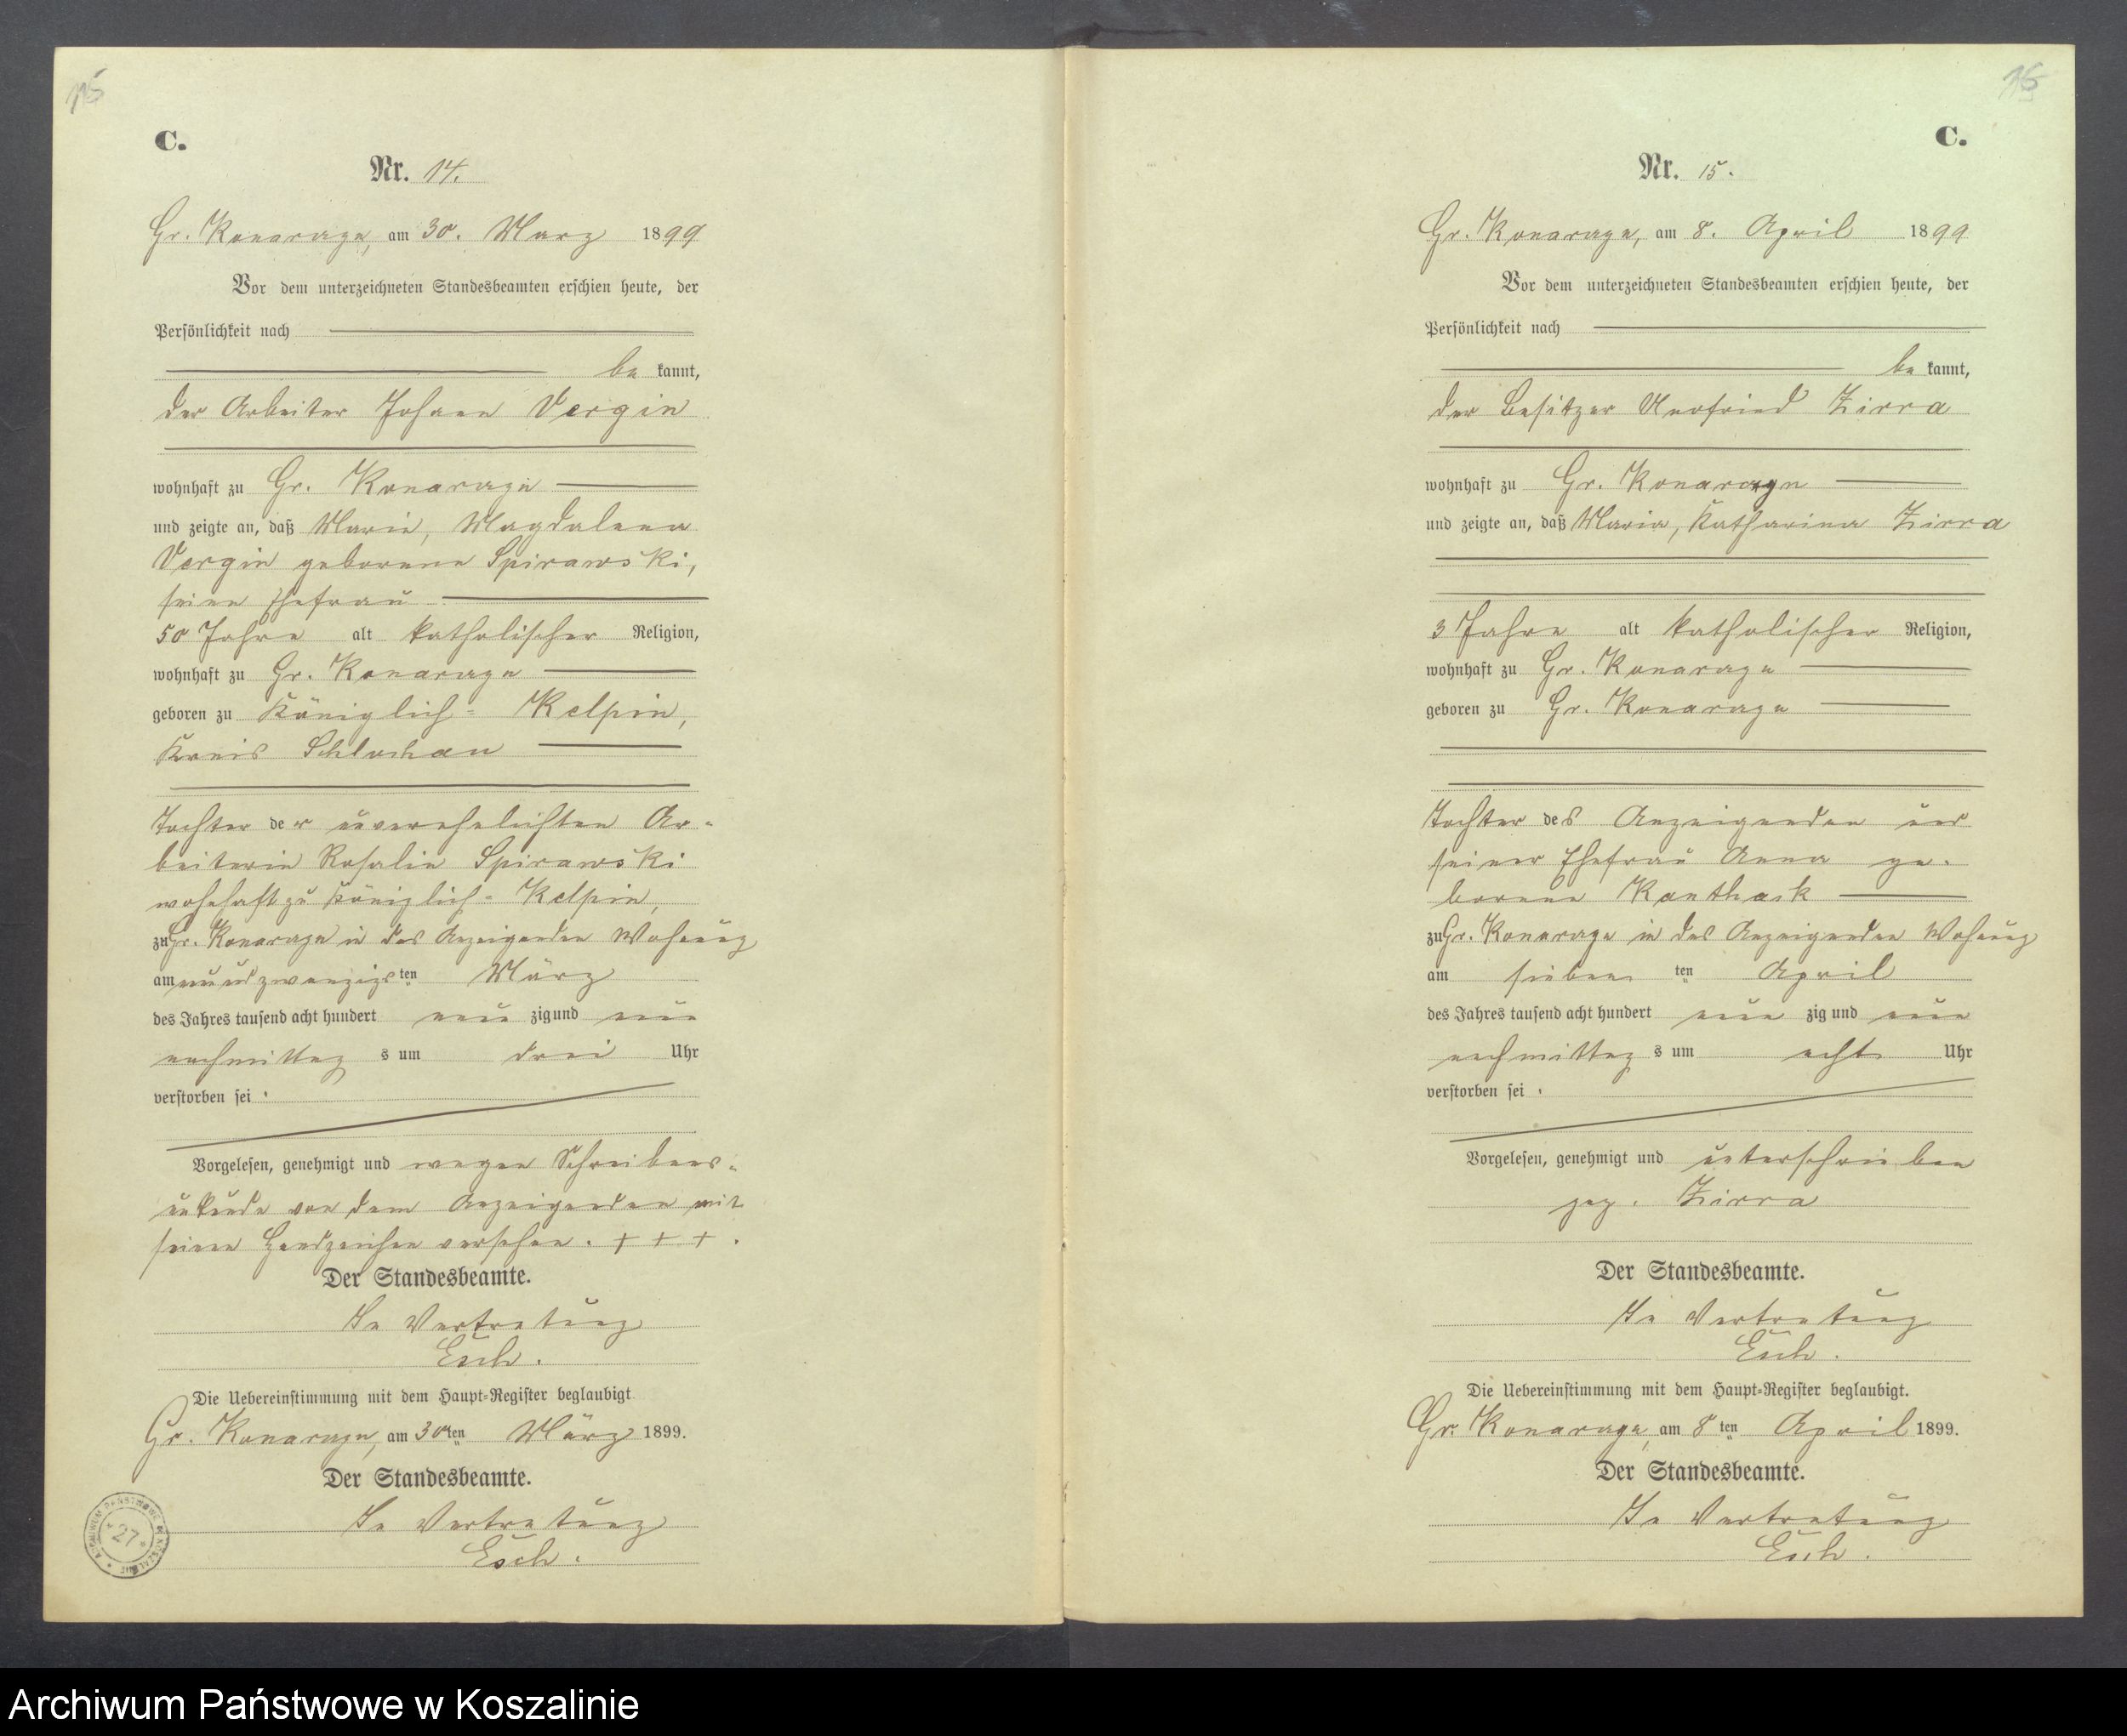 15
C.
Nr. 14.
Gr. Konarczyn, am 30. März 1899
Vor dem unterzeichneten Standesbeamten erschien heute, der
Persönlichkeit nach
be kannt,
der Arbeiter Johann Vergin
wohnhaft zu Gr. Konarczyn
und zeigte an, daß Marie, Magdalena
Vergin geborene Spirawski,
seine Ehefrau
50 Jahre alt katholischer Religion,
wohnhaft zu Gr. Konarczyn
geboren zu Königlich- Kelpin,
Kreis Schlochau
Tochter der unverehelichten Ar-
beiterin Rosalie Spirawski
wohnhaft zu Königlich- Kelpin,
zu Gr. Konarczyn in des Anzeigenden Wohnung
am neunundzwanzigsten März
des Jahres tausend acht hundert neun zig und neun
nachmittag s um drei Uhr
verstorben sei.
Vorgelesen, genehmigt und wegen Schreibens-
unkunde von dem Anzeigenden mit
seinen Handzeichen versehen. + + + .
Der Standesbeamte.
In Vertretung
Esch.
Die Uebereinstimmung mit dem Haupt-Register beglaubigt
Gr. Konarczyn, am 30ten März 1899.
Der Standesbeamte.
In Vertretung
Esch.
ARCHIWUM PAŃSTWOWE W KOSZALINIE
* 27 *
16
C.
Nr. 15.
Gr. Konarczyn, am 8. April 1899
Vor dem unterzeichneten Standesbeamten erschien heute, der
Persönlichkeit nach
be kannt,
der Besitzer Zirra
wohnhaft zu Gr. Konarczyn
und zeigte an, daß Maria, Katharina Zirra
3 Jahre alt katholischer Religion,
wohnhaft zu Gr. Konarczyn
geboren zu Gr. Konarczyn
Tochter des Anzeigenden und
seiner Ehefrau Anna ge-
borene Kanthack
zu Gr. Konarczyn in des Anzeigenden Wohnung
am sieben ten April
des Jahres tausend acht hundert neun zig und neun
nachmittag s um acht Uhr
verstorben sei .
Vorgelesen, genehmigt und unterschrieben
gez. Zirra
Der Standesbeamte.
In Vertretung
Esch.
Die Uebereinstimmung mit dem Haupt-Register beglaubigt.
Gr. Konarczyn, am 8 ten April 1899.
Der Standesbeamte.
In Vertretung
Esch.
Archiwum Państwowe w Koszalinie